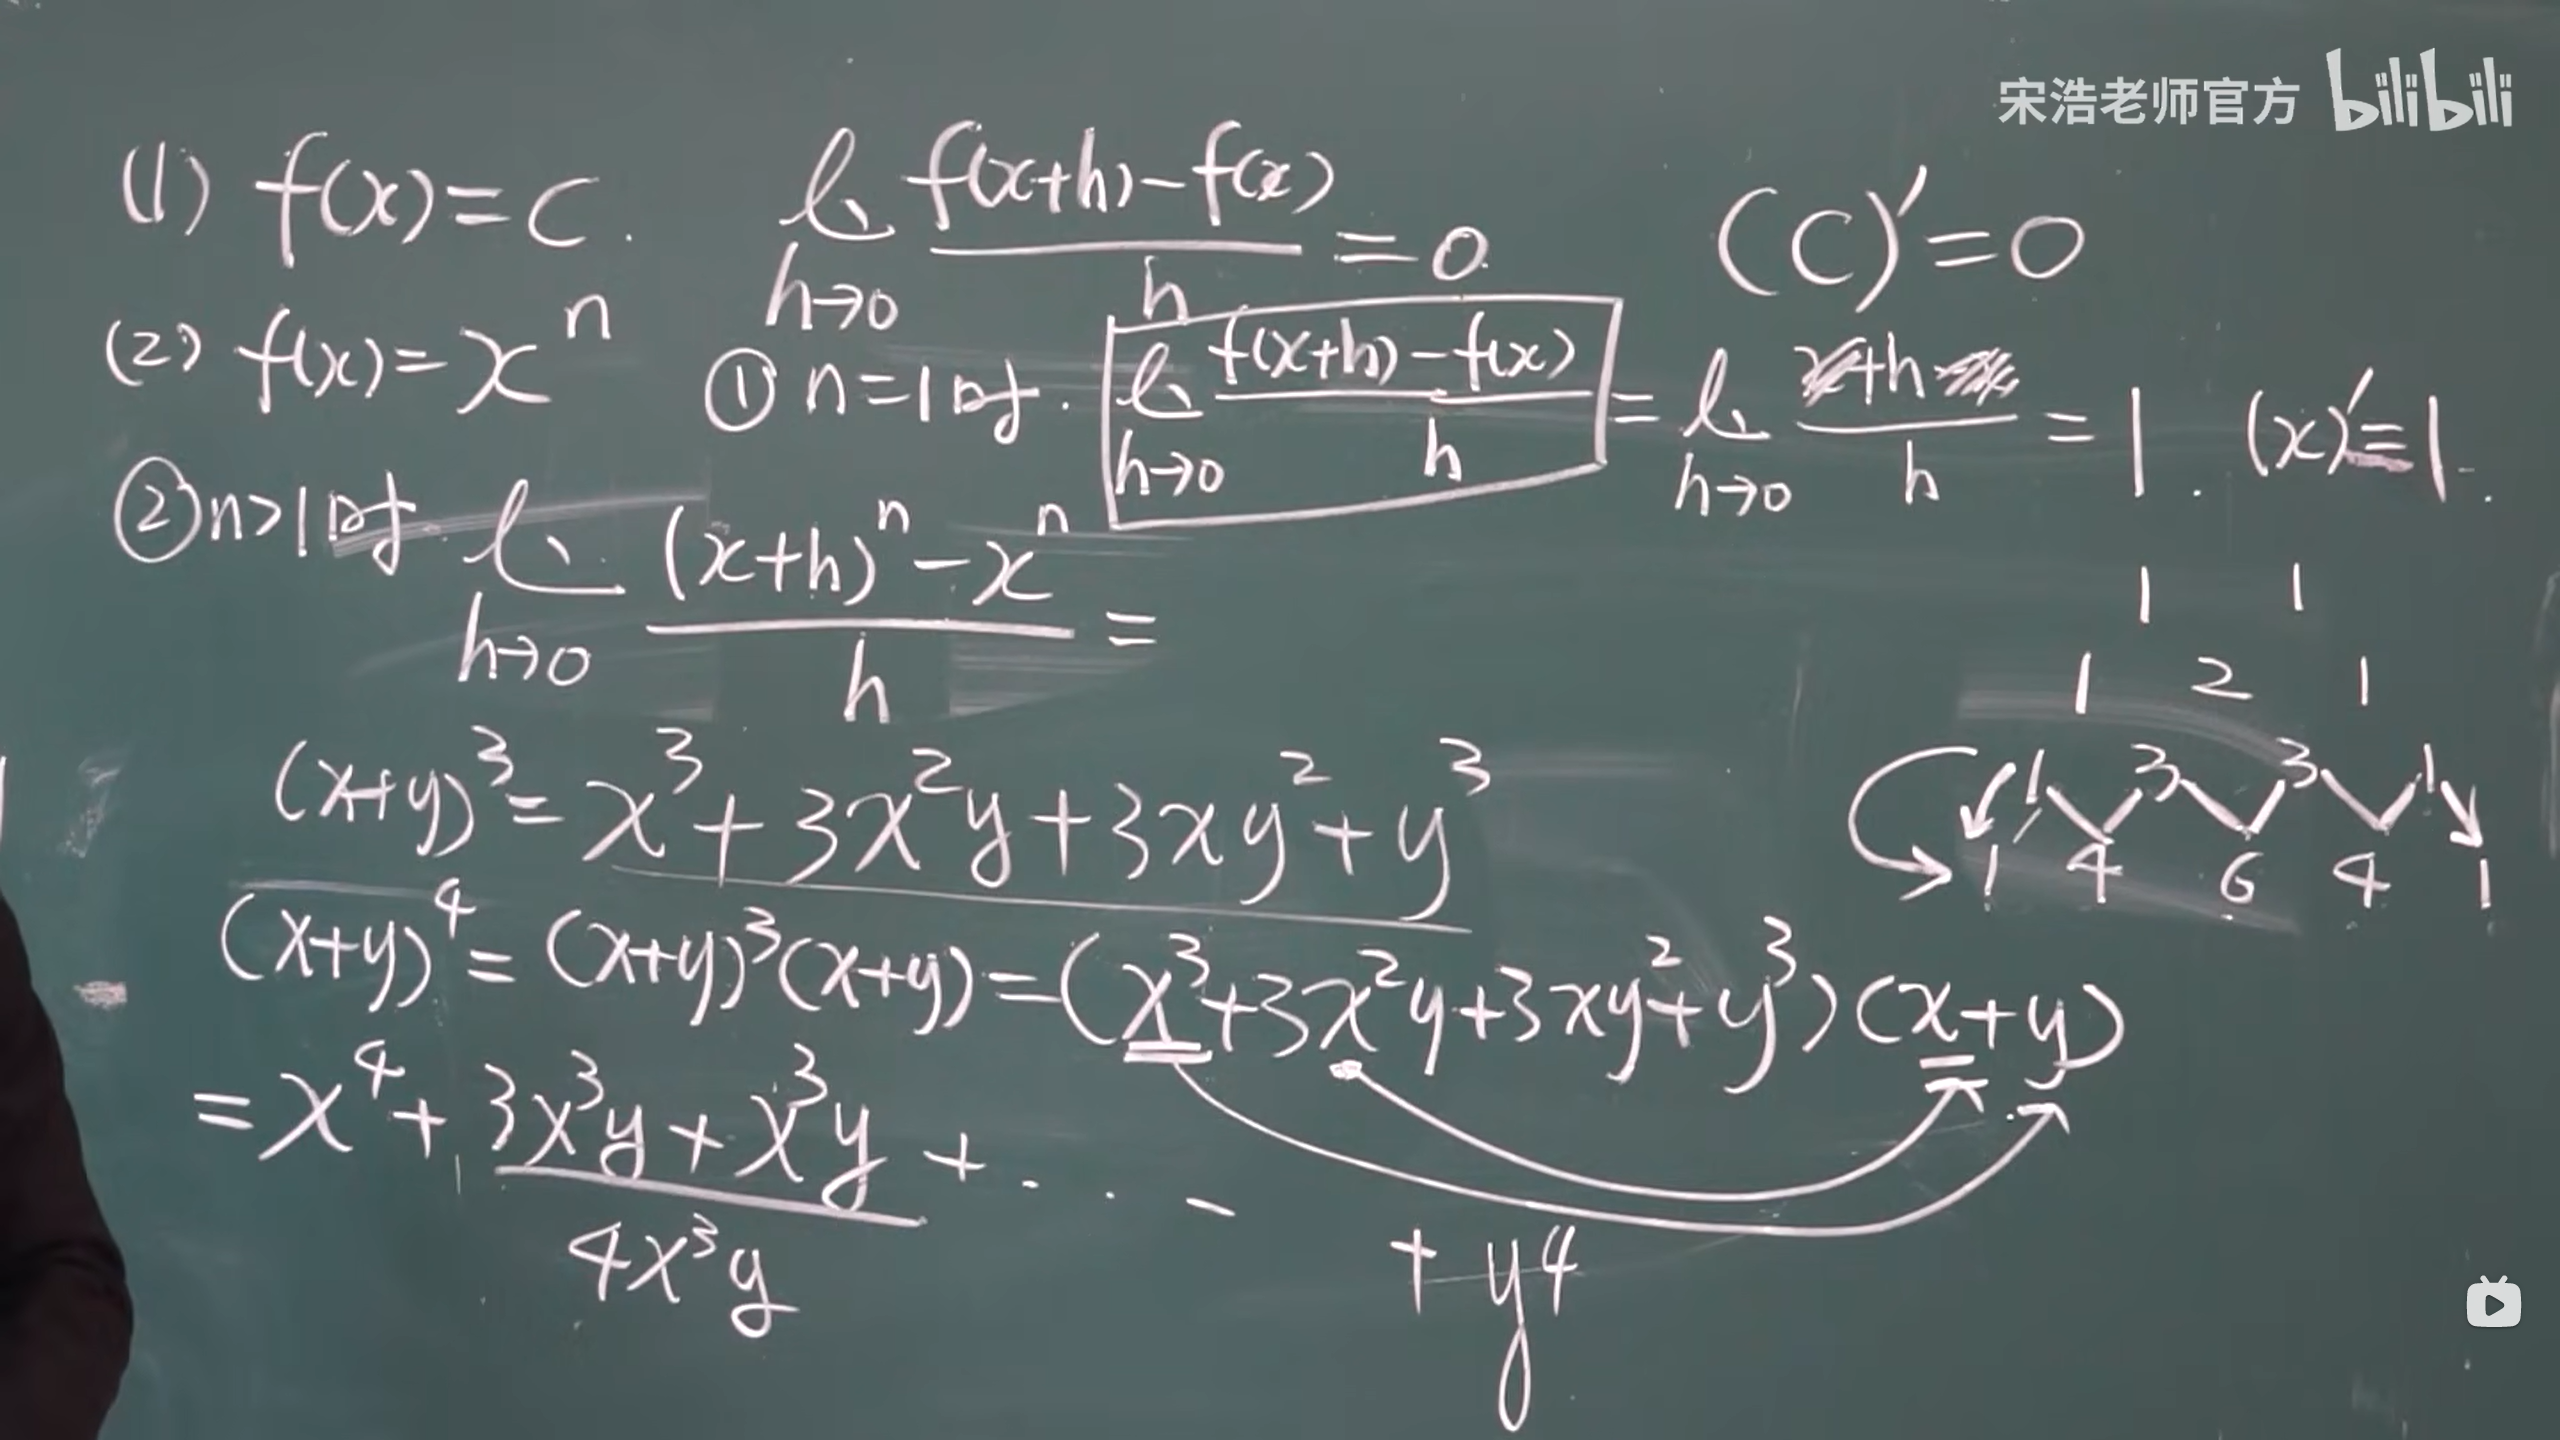 宋浩老师官方 bilibili
(1) f(x)=C. lim h→0 f(x+h)-f(x) / h =0 (C)'=0
(2) f(x)=x^n ① n=1时. lim h→0 f(x+h)-f(x) / h = lim h→0 x+h-x / h =1. (x)'=1.
② n>1时. lim h→0 (x+h)^n-x^n / h =
1 1
1 2 1
(x+y)^3=x^3+3x^2y+3xy^2+y^3 1 3 3 1
1 4 6 4 1
(x+y)^4=(x+y)^3(x+y)=(x^3+3x^2y+3xy^2+y^3)(x+y)
=x^4+3x^3y+x^3y+... +y4
4x^3y